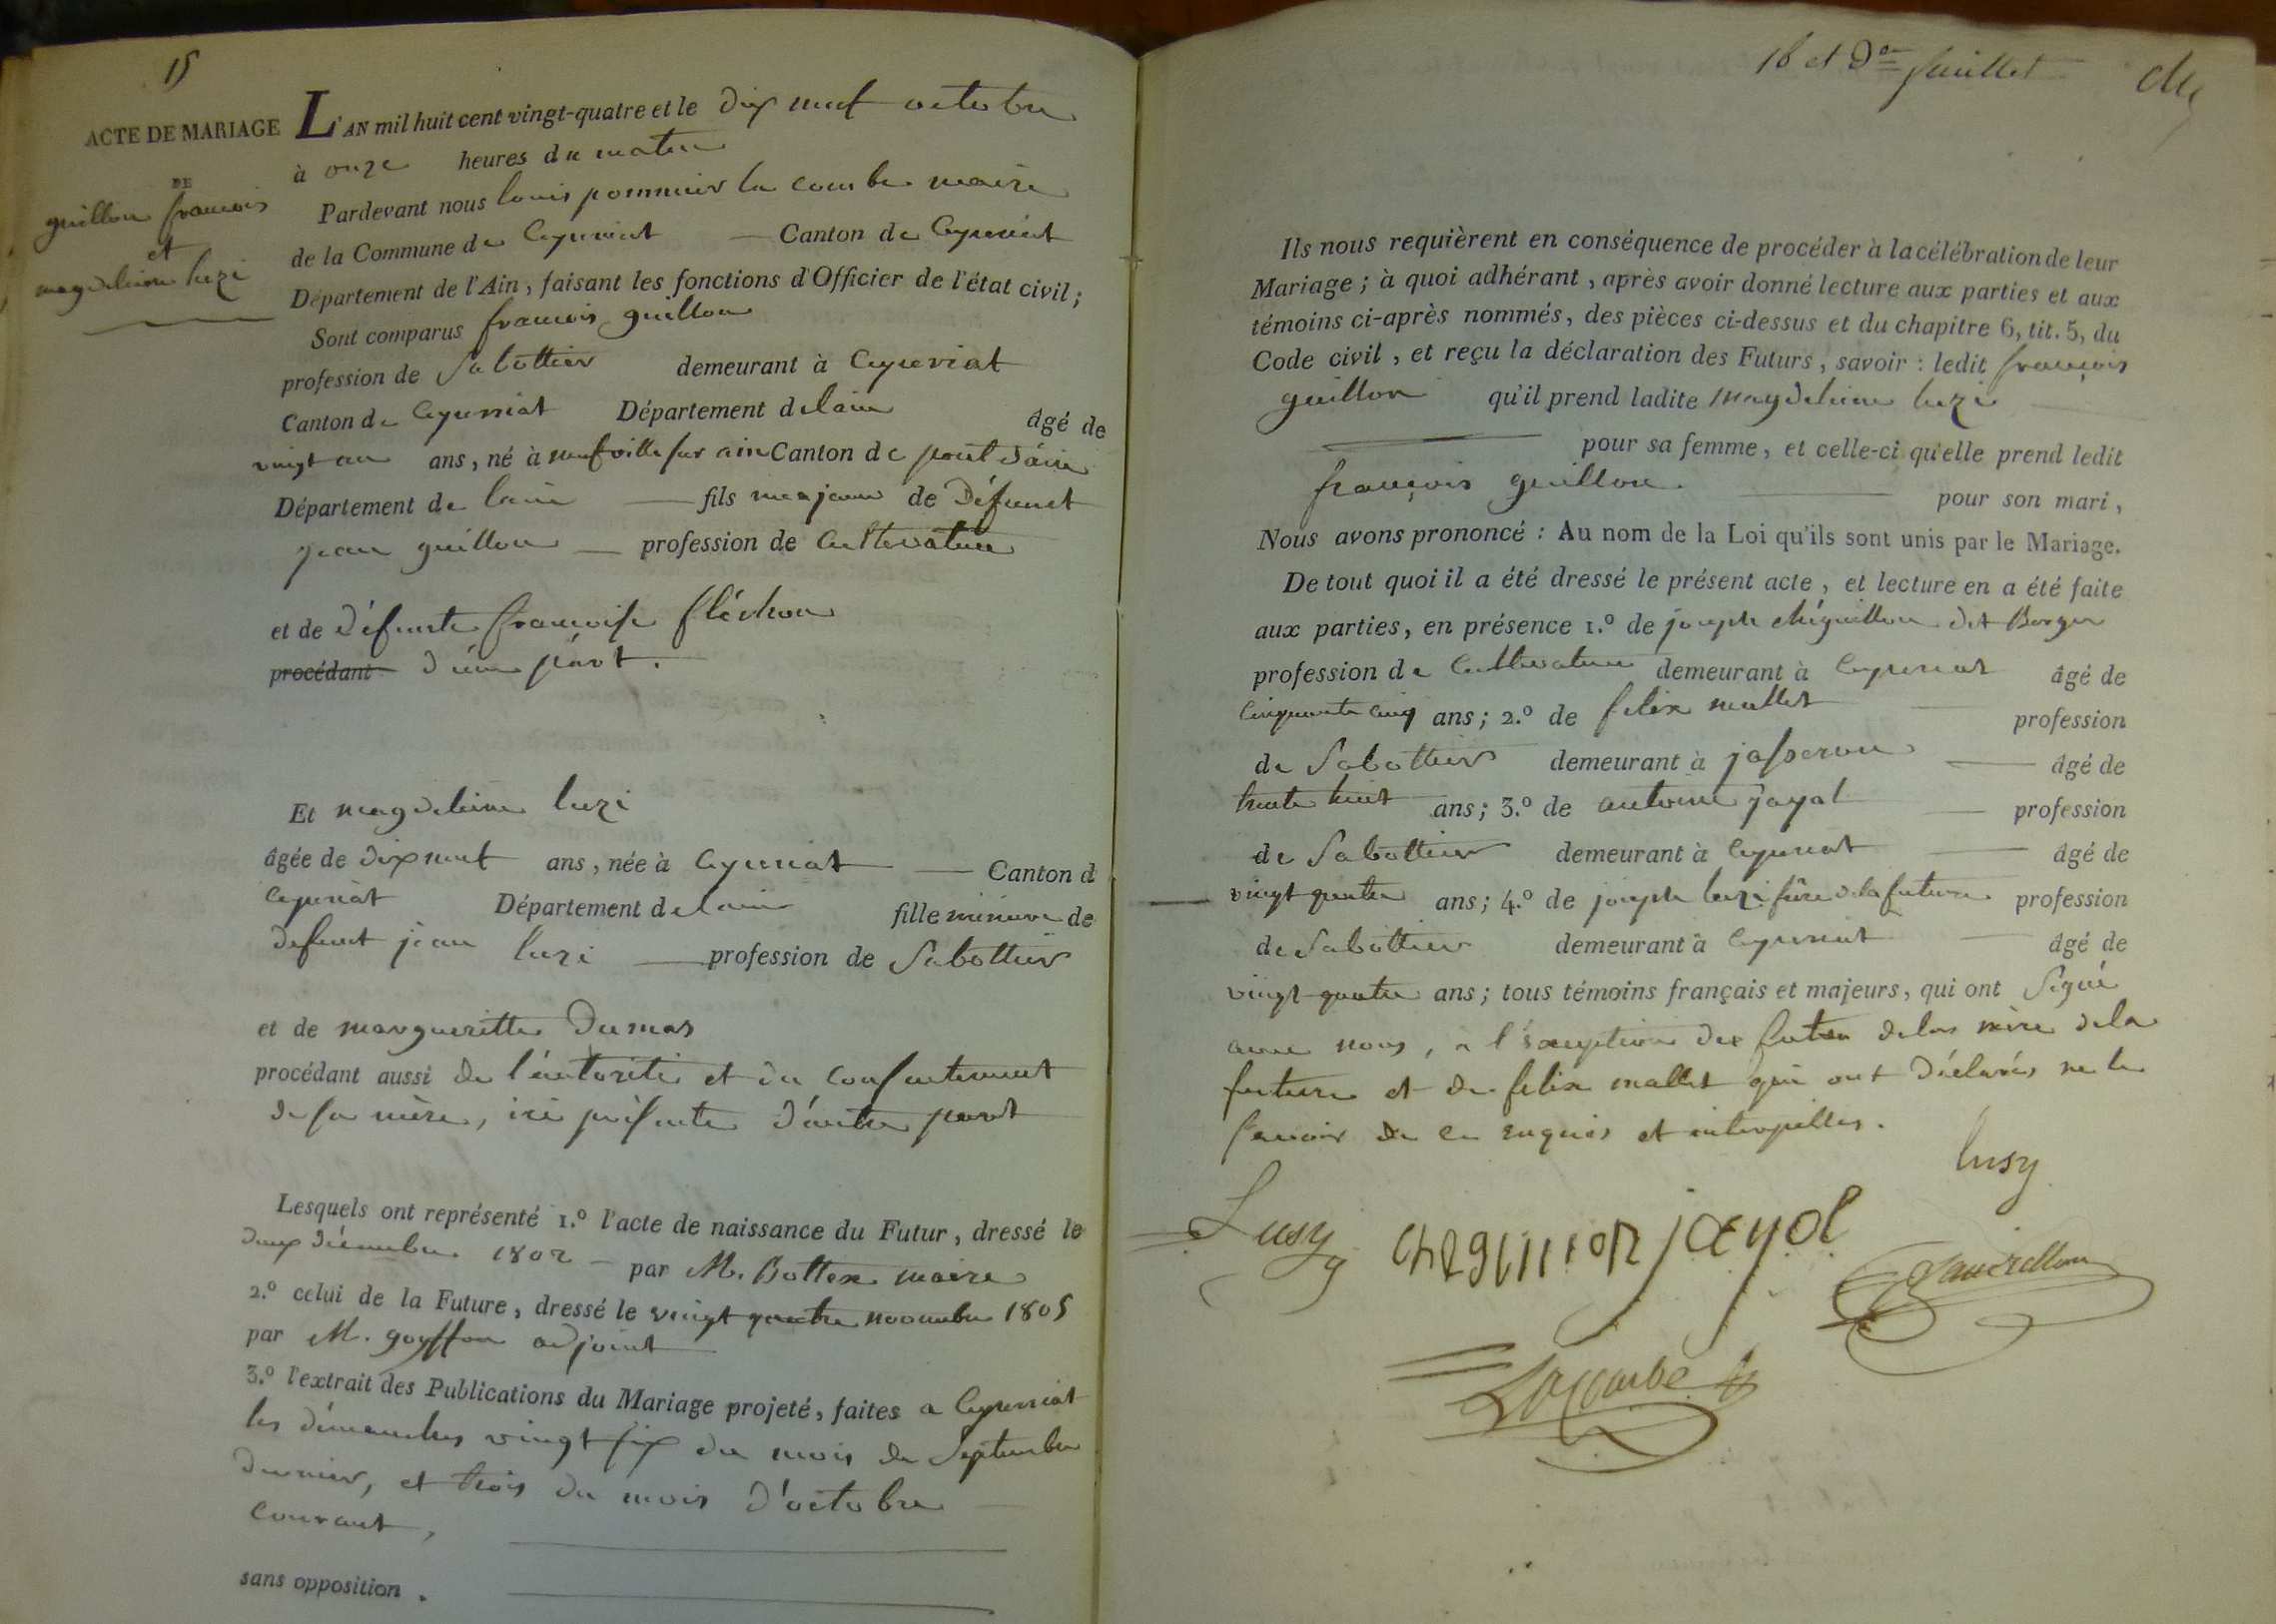 15
ACTE DE MARIAGE
DE
guillon francois
et
magdeleine luzi
L'AN mil huit cent vingt-quatre et le dix neuf octobre
à onze heures du matin
Pardevant nous louis pommier la combe maire
de la Commune de Ceyzeriat Canton de Ceyzeriat
Département de l'Ain, faisant les fonctions d'Officier de l'état civil;
Sont comparus francois guillon
profession de Sabottier demeurant à Ceyzeriat
Canton de Ceyzeriat Département delain âgé de
vingt un ans, né à neufville sur ain Canton de pont d'ain
Département de lain fils majeur de Défunct
jean guillon profession de Cultivateur
et de défunte francoise fléchon
procédant d'une part.
Et magdeleine luzi
âgée de dix neuf ans, née à Ceyzeriat Canton d
Ceyzeriat Département delain fille mineure de
defunt jean luzi profession de Sabottier
et de margueritte Dumas
procédant aussi de l'autorité et du consentement
de sa mère, ici présente d'autre part
Lesquels ont représenté 1.º l'acte de naissance du Futur, dressé le
deux décembre 1802 par M. Bottex maire
2.º celui de la Future, dressé le vingt quatre novembre 1805
par M. goyffon adjoint
3.º l'extrait des Publications du Mariage projeté, faites a Ceyzeriat
les dimanches vingt six du mois de Septembre
dernier, et trois du mois d'octobre
Courant,
sans opposition.
16 et D.er feuillet
Ils nous requièrent en conséquence de procéder à la célébration de leur
Mariage; à quoi adhérant, après avoir donné lecture aux parties et aux
témoins ci-après nommés, des pièces ci-dessus et du chapitre 6, tit. 5, du
Code civil, et reçu la déclaration des Futurs, savoir: ledit françois
guillon qu'il prend ladite magdeleine luzi
pour sa femme, et celle-ci qu'elle prend ledit
françois guillon. pour son mari,
Nous avons prononcé: Au nom de la Loi qu'ils sont unis par le Mariage.
De tout quoi il a été dressé le présent acte, et lecture en a été faite
aux parties, en présence 1.º de joseph chéguillon dit Berger
profession de Cultivateur demeurant à Ceyzeriat âgé de
Cinquante cinq ans; 2.º de felix mallet profession
de Sabottier demeurant à jasseron âgé de
trente huit ans; 3.º de antoine jayol profession
de Sabottier demeurant à Ceyzeriat âgé de
vingt quatre ans; 4.º de joseph luzi frère de la future profession
de Sabottier demeurant à Ceyzeriat âgé de
vingt quatre ans; tous témoins français et majeurs, qui ont Signé
avec nous, a l'exception de la mère de la
future et de felix mallet qui ont déclarés ne le
savoir de ce enquis et interpellés.
lusy
Lusy cheguillon jayol
Lacombe